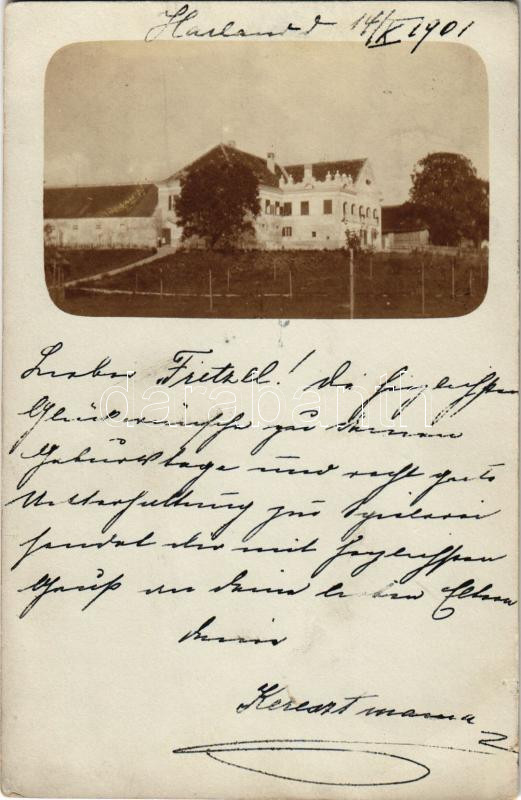 Harland d 14/X 1901
Lieber Fretzll! Die herzlichsten
Glückwünsche zu deinem
Geburtstage und recht gute
Unterhaltung zur Spielerei
sendet dir mit herzlichsten
Gruß an deine lieben Eltern
deine
Keresztmama
darabanth